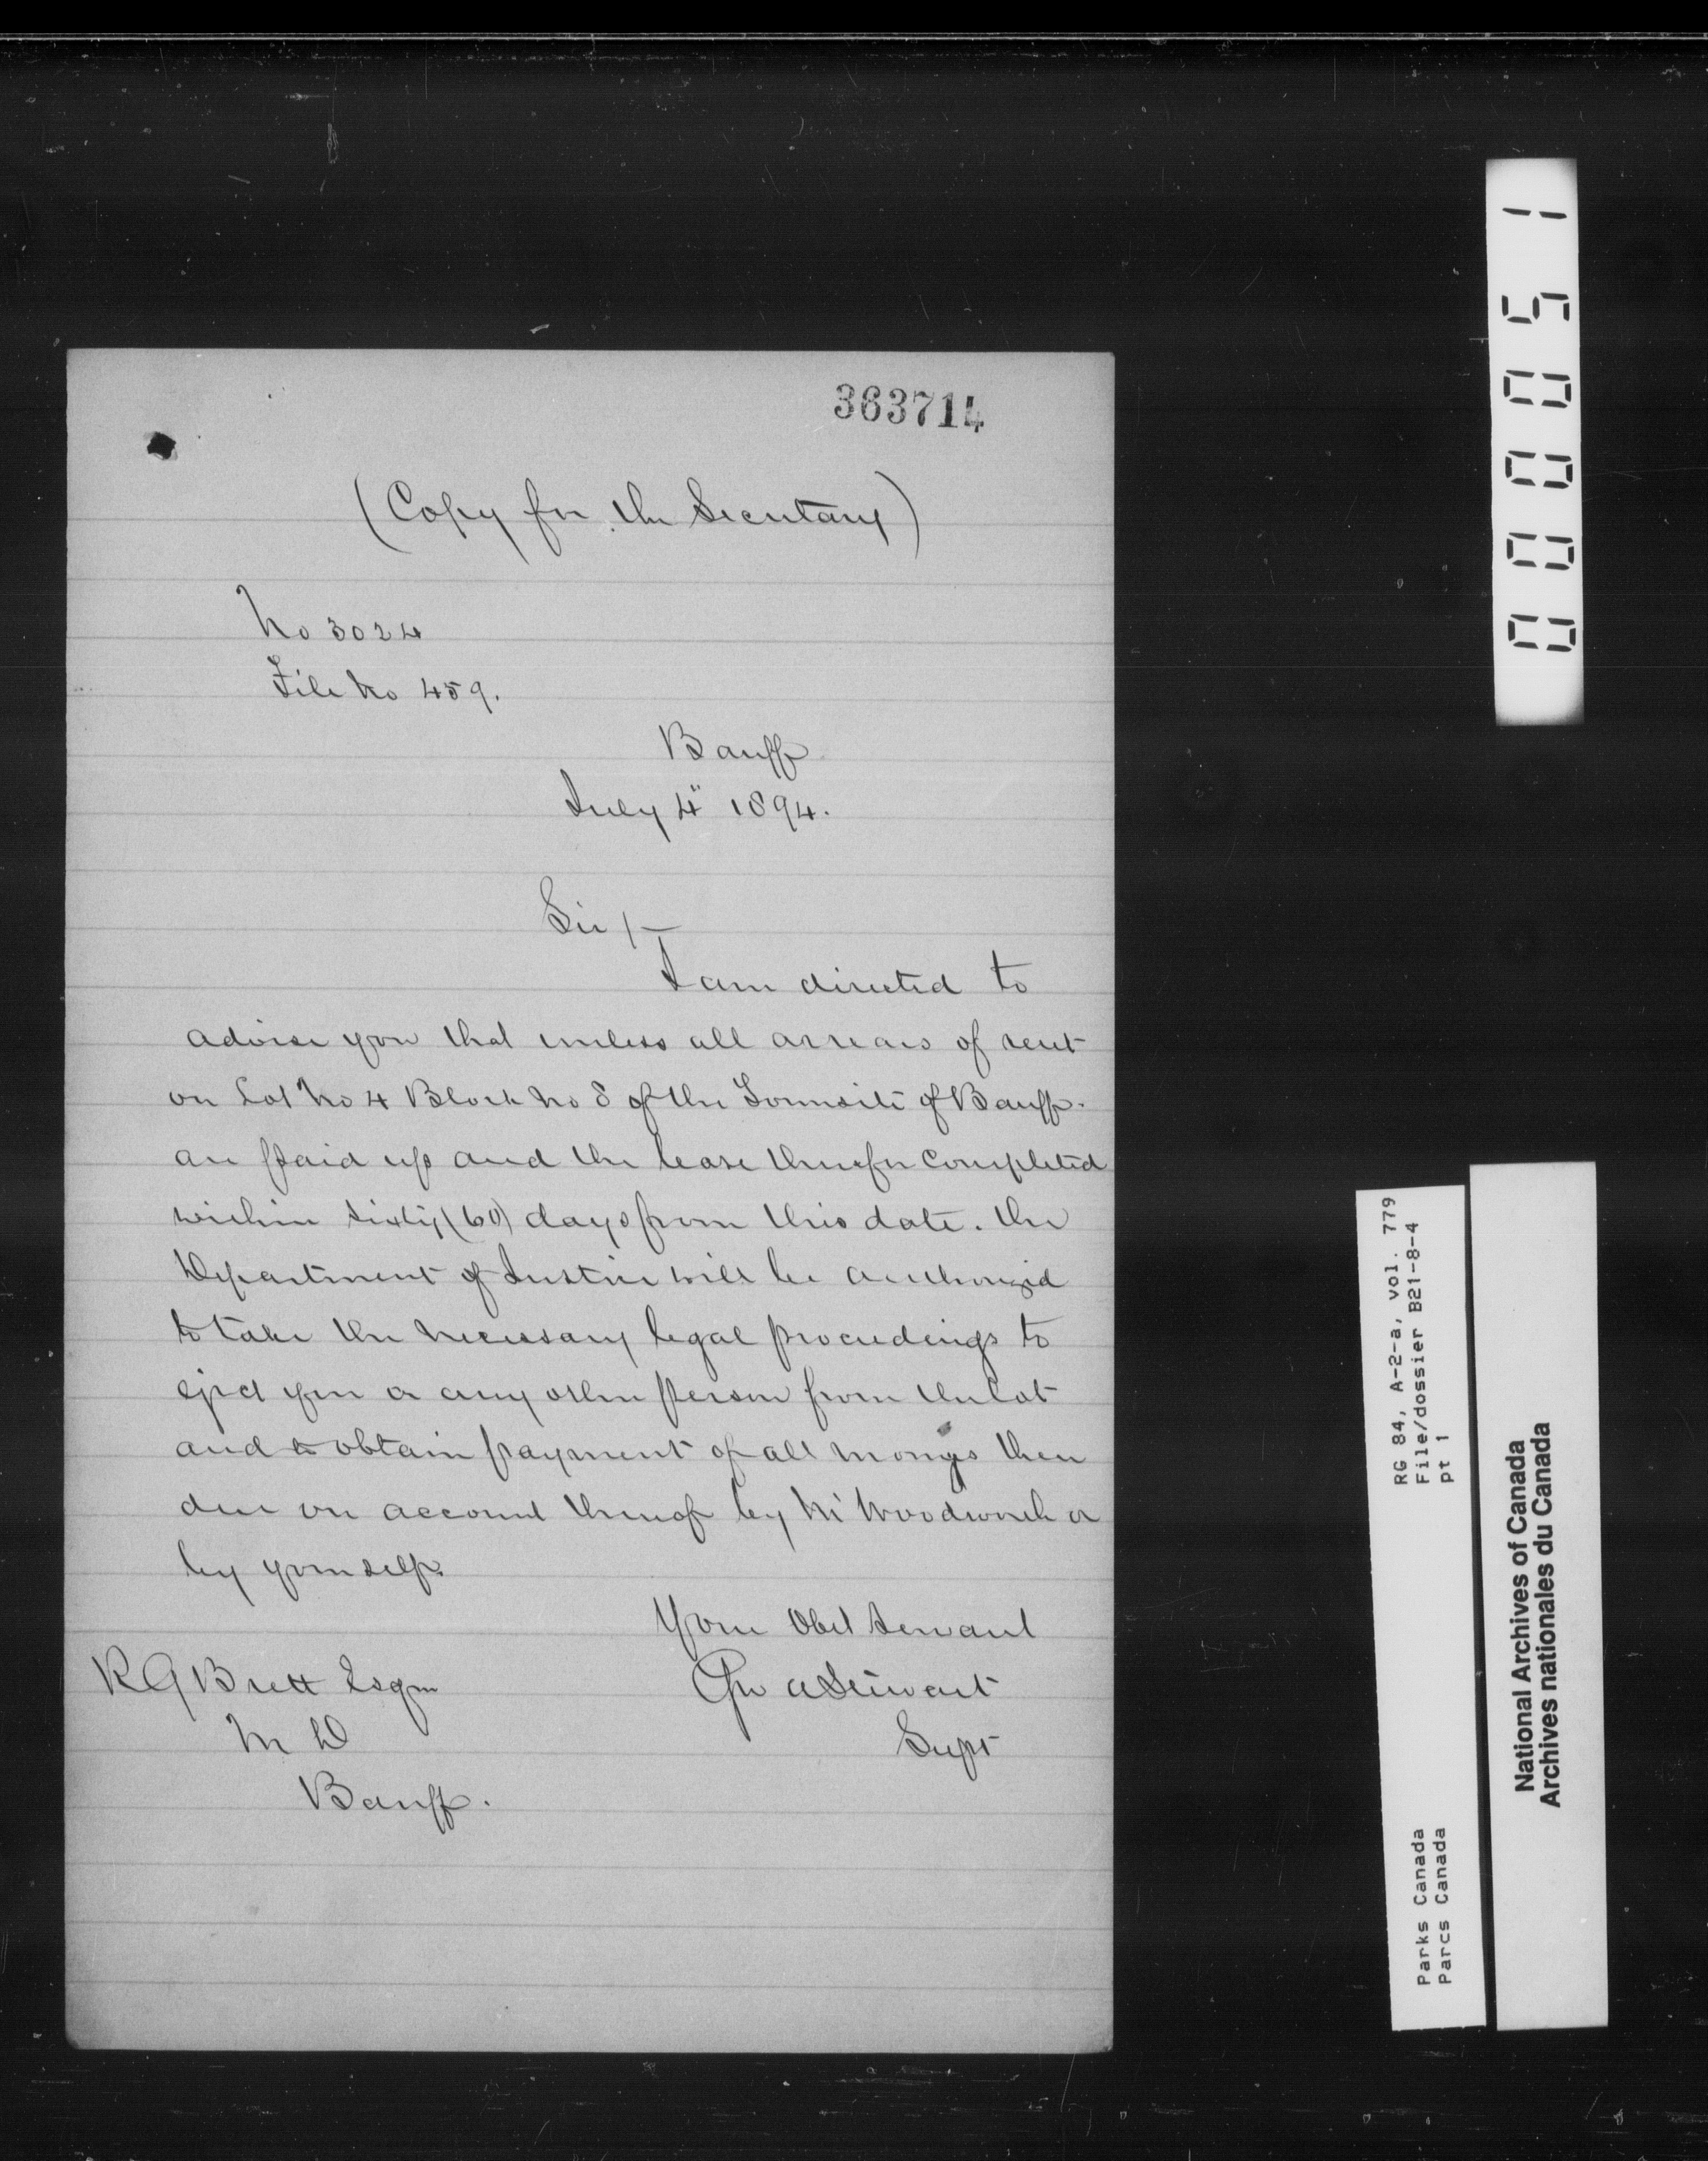 363714
(Copy for the Secretary)
No 3024
File No 459.
Banff
July 4" 1894.
Sir /—
I am directed to
advise you that unless all arrears of rent
on Lot No 4 Block No 8 of the Townsite of Banff.
are paid up and the lease therefor completed
within sixty (60) days from this date. the
Department of Justice will be authorized
to take the necessary legal proceedings to
eject you or any other person from the lot
and to obtain payment of all monys then
due on account thereof by Mr Woodworth or
by yourself.
Your Obdt Servant
Geo A Stewart
Supt
R G Brett Esqre
M D
Banff.
000051
RG 84, A-2-a, vol. 779
File/dossier B21-8-4
pt 1
Parks Canada
Parcs Canada
National Archives of Canada
Archives nationales du Canada